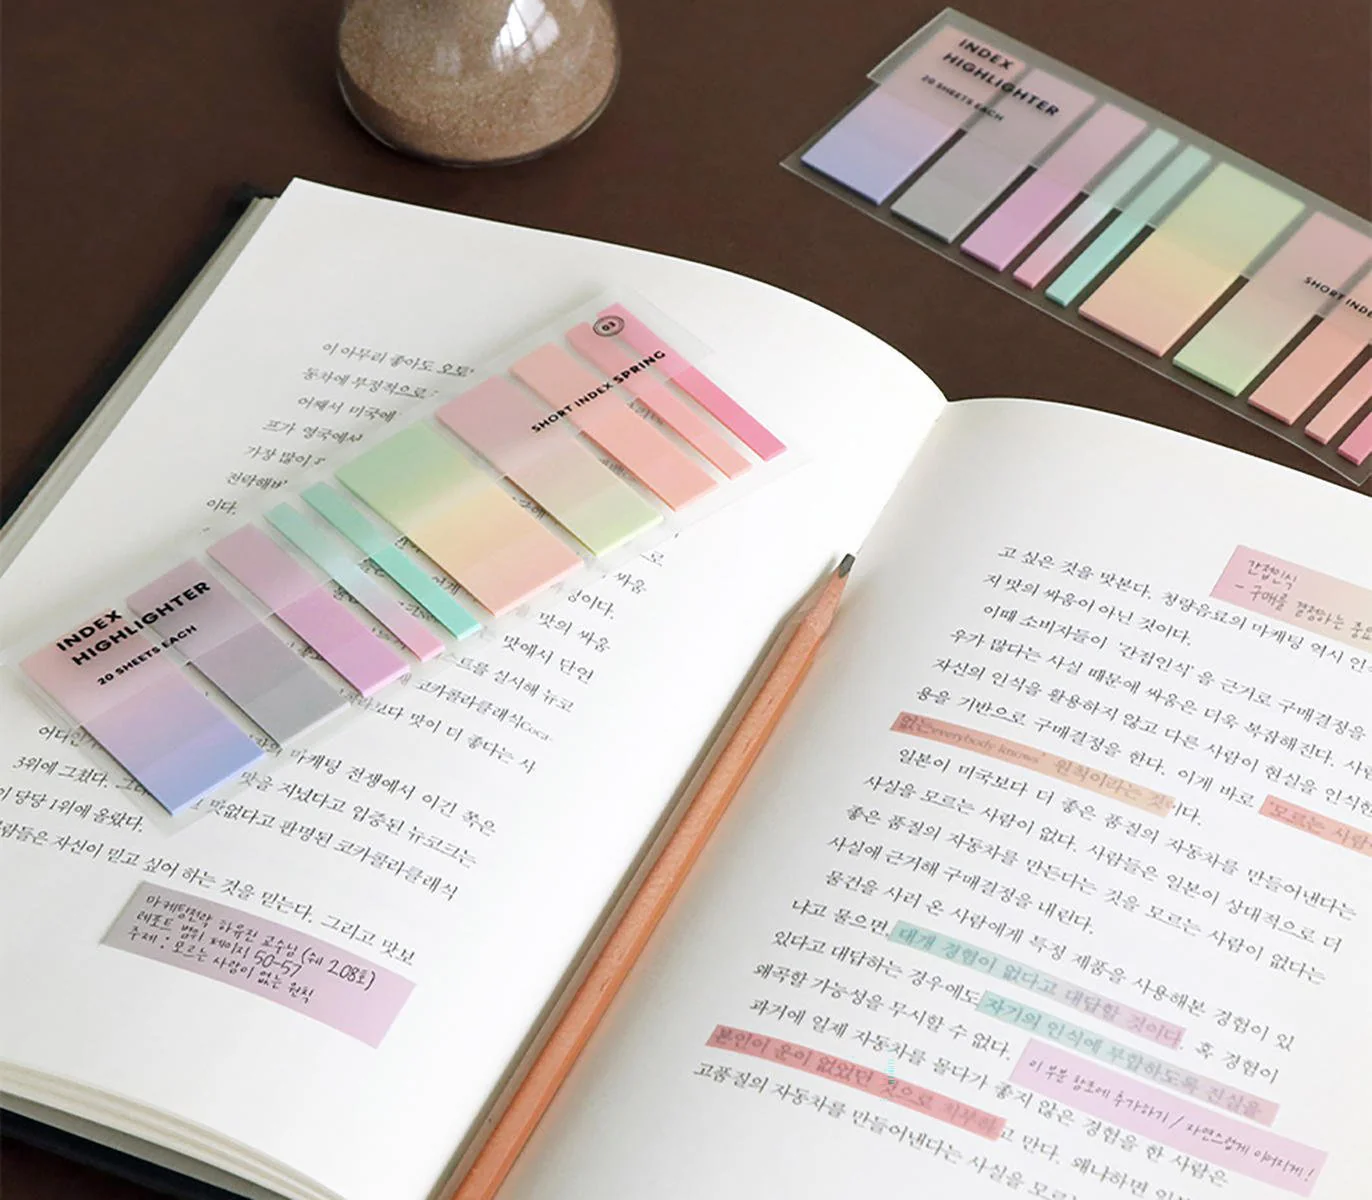 INDEX
HIGHLIGHTER
20 SHEETS EACH
SHORT INDE
03
SHORT INDEX SPRING
INDEX
HIGHLIGHTER
20 SHEETS EACH
이 아무리 좋아도 오토
동차에 부정적으로
어째서 미국에
프가 영국에서
가장 많이
전락해버
이다.
싸움
이다.
맛의 싸움
맛에서 단연
스트를 실시해 뉴코
코카콜라클래식Coca-
보다 맛이 더 좋다는 시
마케팅 전쟁에서 이긴 쪽은
3위에 그쳤다.
맛을 지녔다고 입증된 뉴코크는
당당 1위에 올랐다.
맛없다고 판명된 코카콜라클래식
람들은 자신이 믿고 싶어 하는 것을 믿는다. 그리고 맛보
마케팅전략 하유진 교수님 (쉐 208호)
레포트 범위 페이지 50-57
주제 : 모르는 사람이 없는 원칙
고 싶은 것을 맛본다. 청량음료의 마케팅 역시 인
저 맛의 싸움이 아닌 것이다.
간접인식
- 구매를 결정하는 중요
이때 소비자들이 '간접인식'을 근거로 구매결정을
우가 많다는 사실 때문에 싸움은 더욱 복잡해진다. 사람
자신의 인식을 활용하지 않고 다른 사람이 현실을 인식한
용을 기반으로 구매결정을 한다. 이게 바로 '모르는 사람
없는everybody knows' 원칙이라는 것이다.
일본이 미국보다 더 좋은 품질의 자동차를 만들어낸다는
사실을 모르는 사람이 없다. 사람들은 일본이 상대적으로 더
좋은 품질의 자동차를 만든다는 것을 모르는 사람이 없다는
사실에 근거해 구매결정을 내린다.
물건을 사러 온 사람에게 특정 제품을 사용해본 경험이 있
냐고 물으면, 대개 경험이 없다고 대답할 것이다. 혹 경험이
있다고 대답하는 경우에도 자기의 인식에 부합하도록 진실을
왜곡할 가능성을 무시할 수 없다.
이 부분 참조에 추가하기 / 자연스럽게 이어지게!
과거에 일제 자동차를 몰다가 좋지 않은 경험을 한 사람은
본인이 운이 없었던 것으로 치부하고 만다. 왜냐하면 일본
고품질의 자동차를 만들어낸다는 사실을 모르